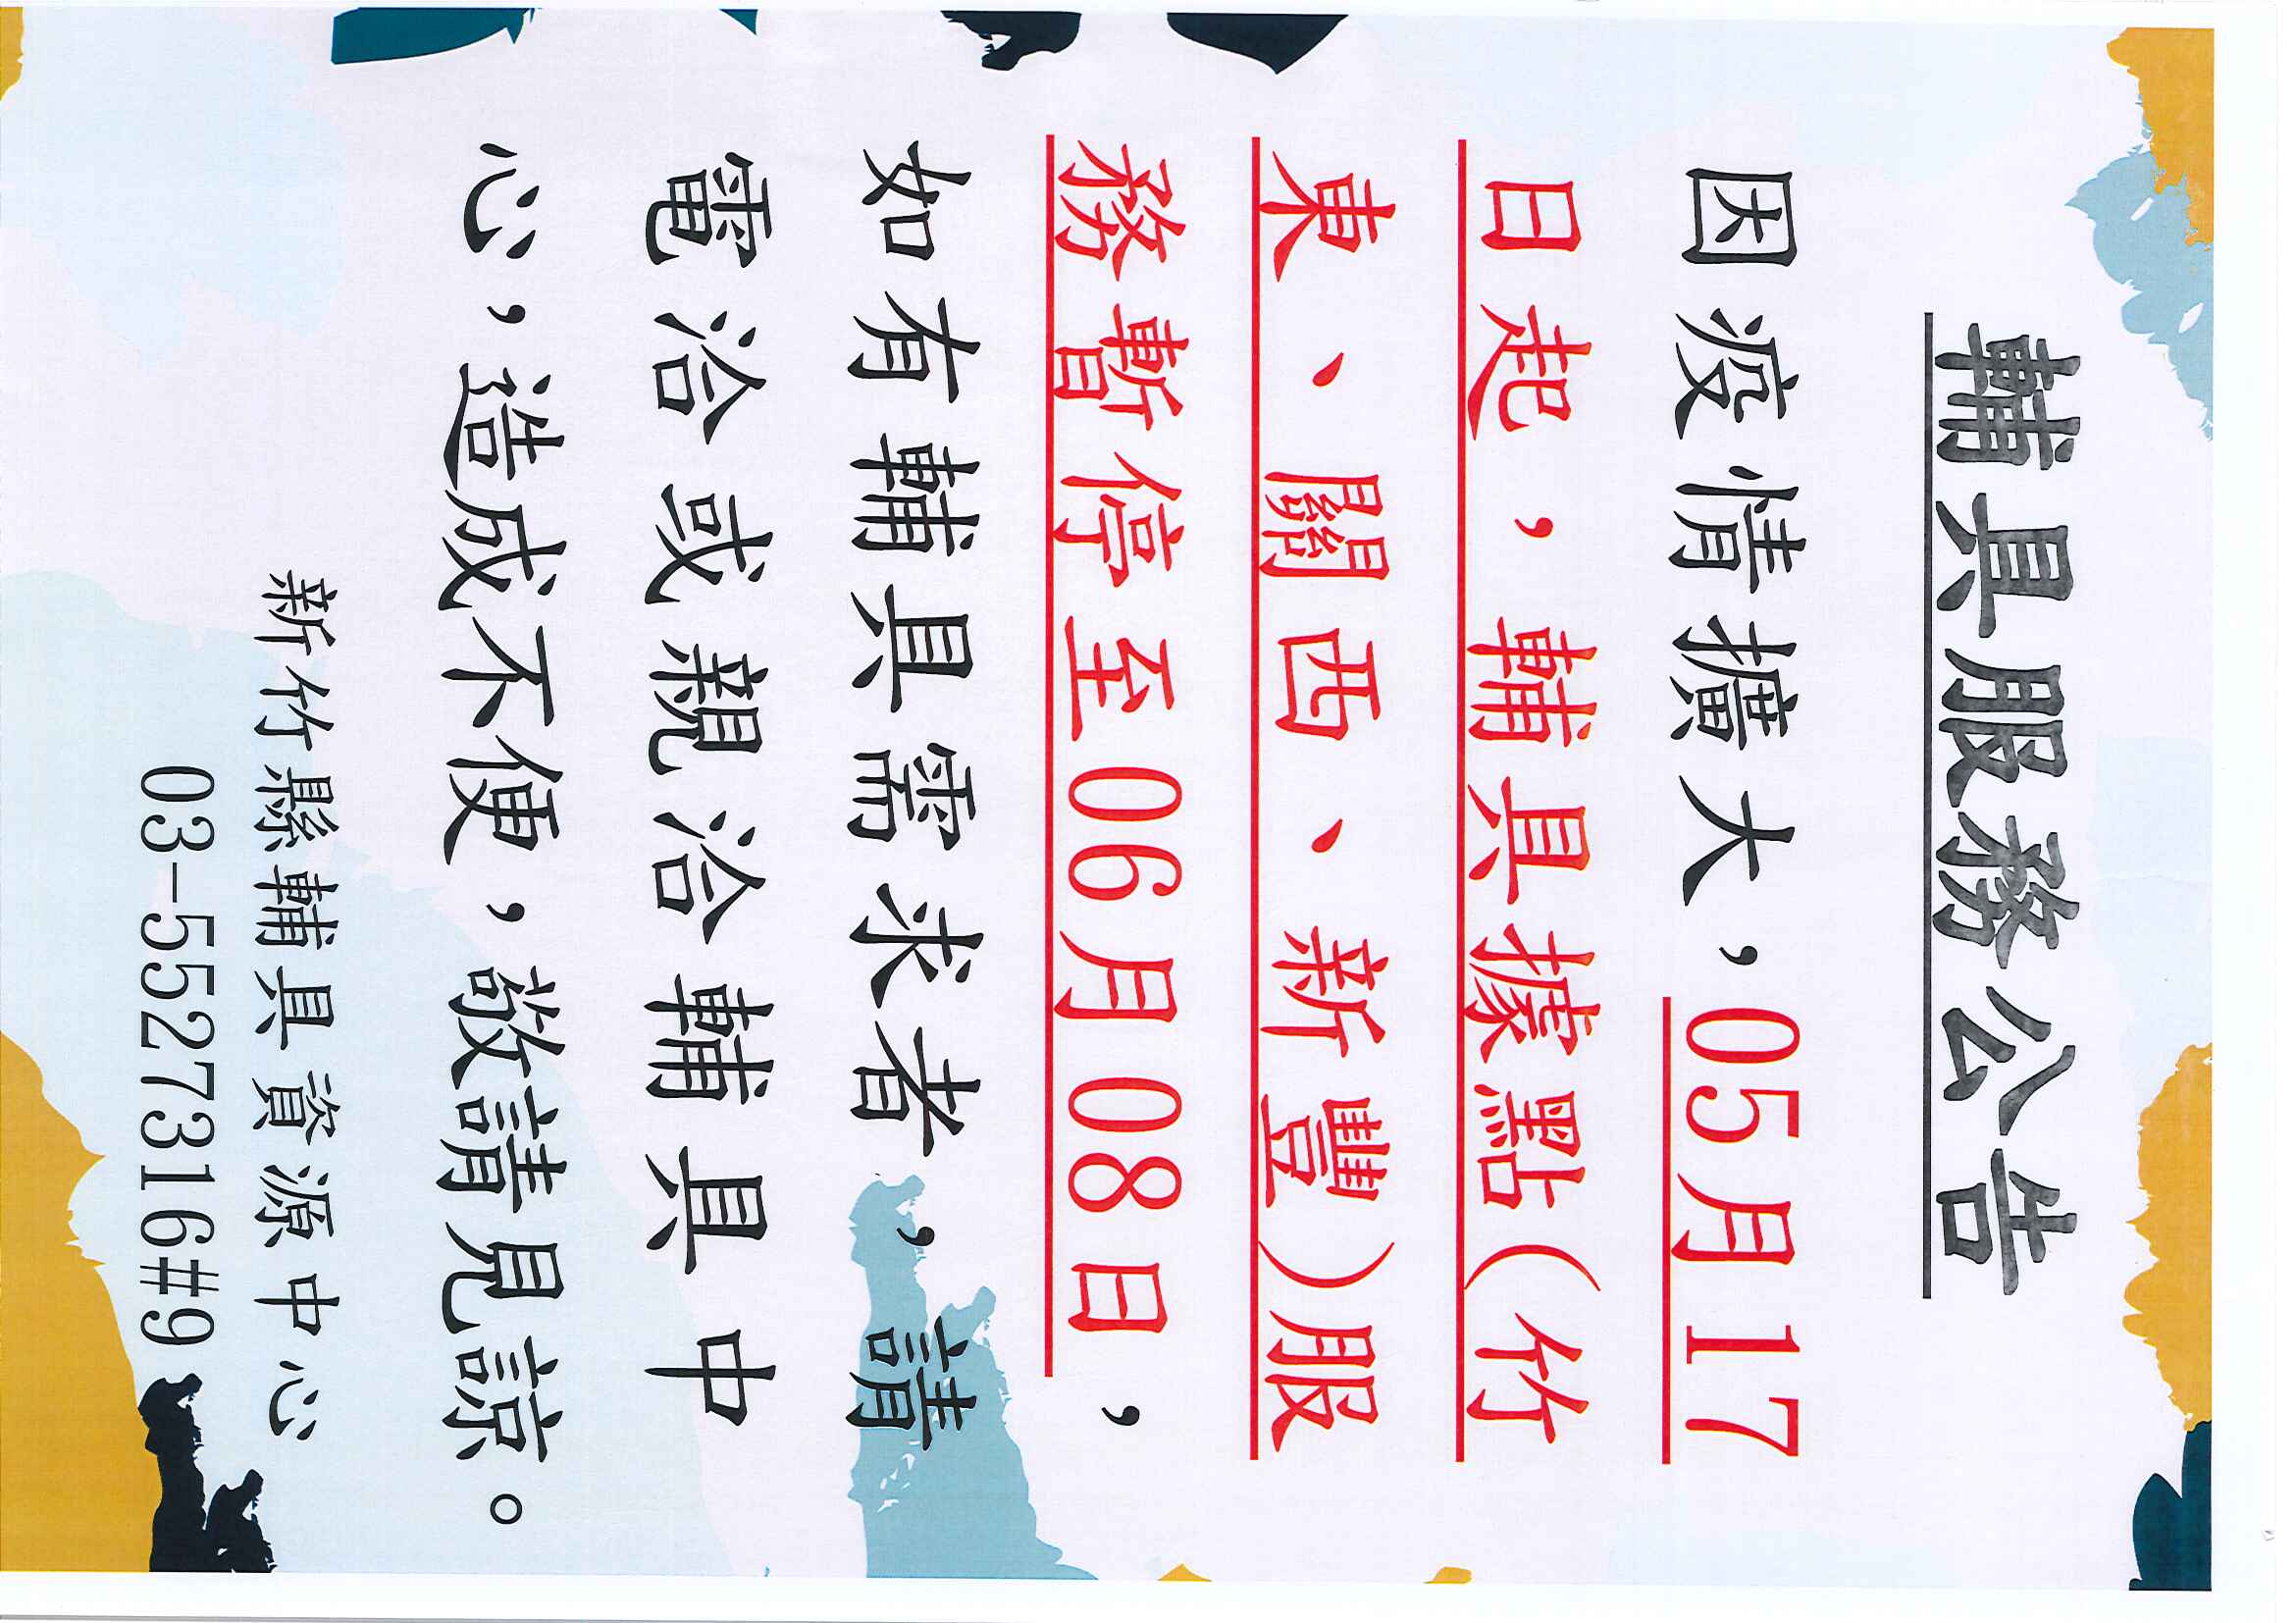 輔具服務公告
因疫情擴大，05月17
日起，輔具據點(竹
東、關西、新豐)服
務暫停至06月08日，
如有輔具需求者，請
電洽或親洽輔具中
心，造成不便，敬請見諒。
新竹縣輔具資源中心
03-5527316#9